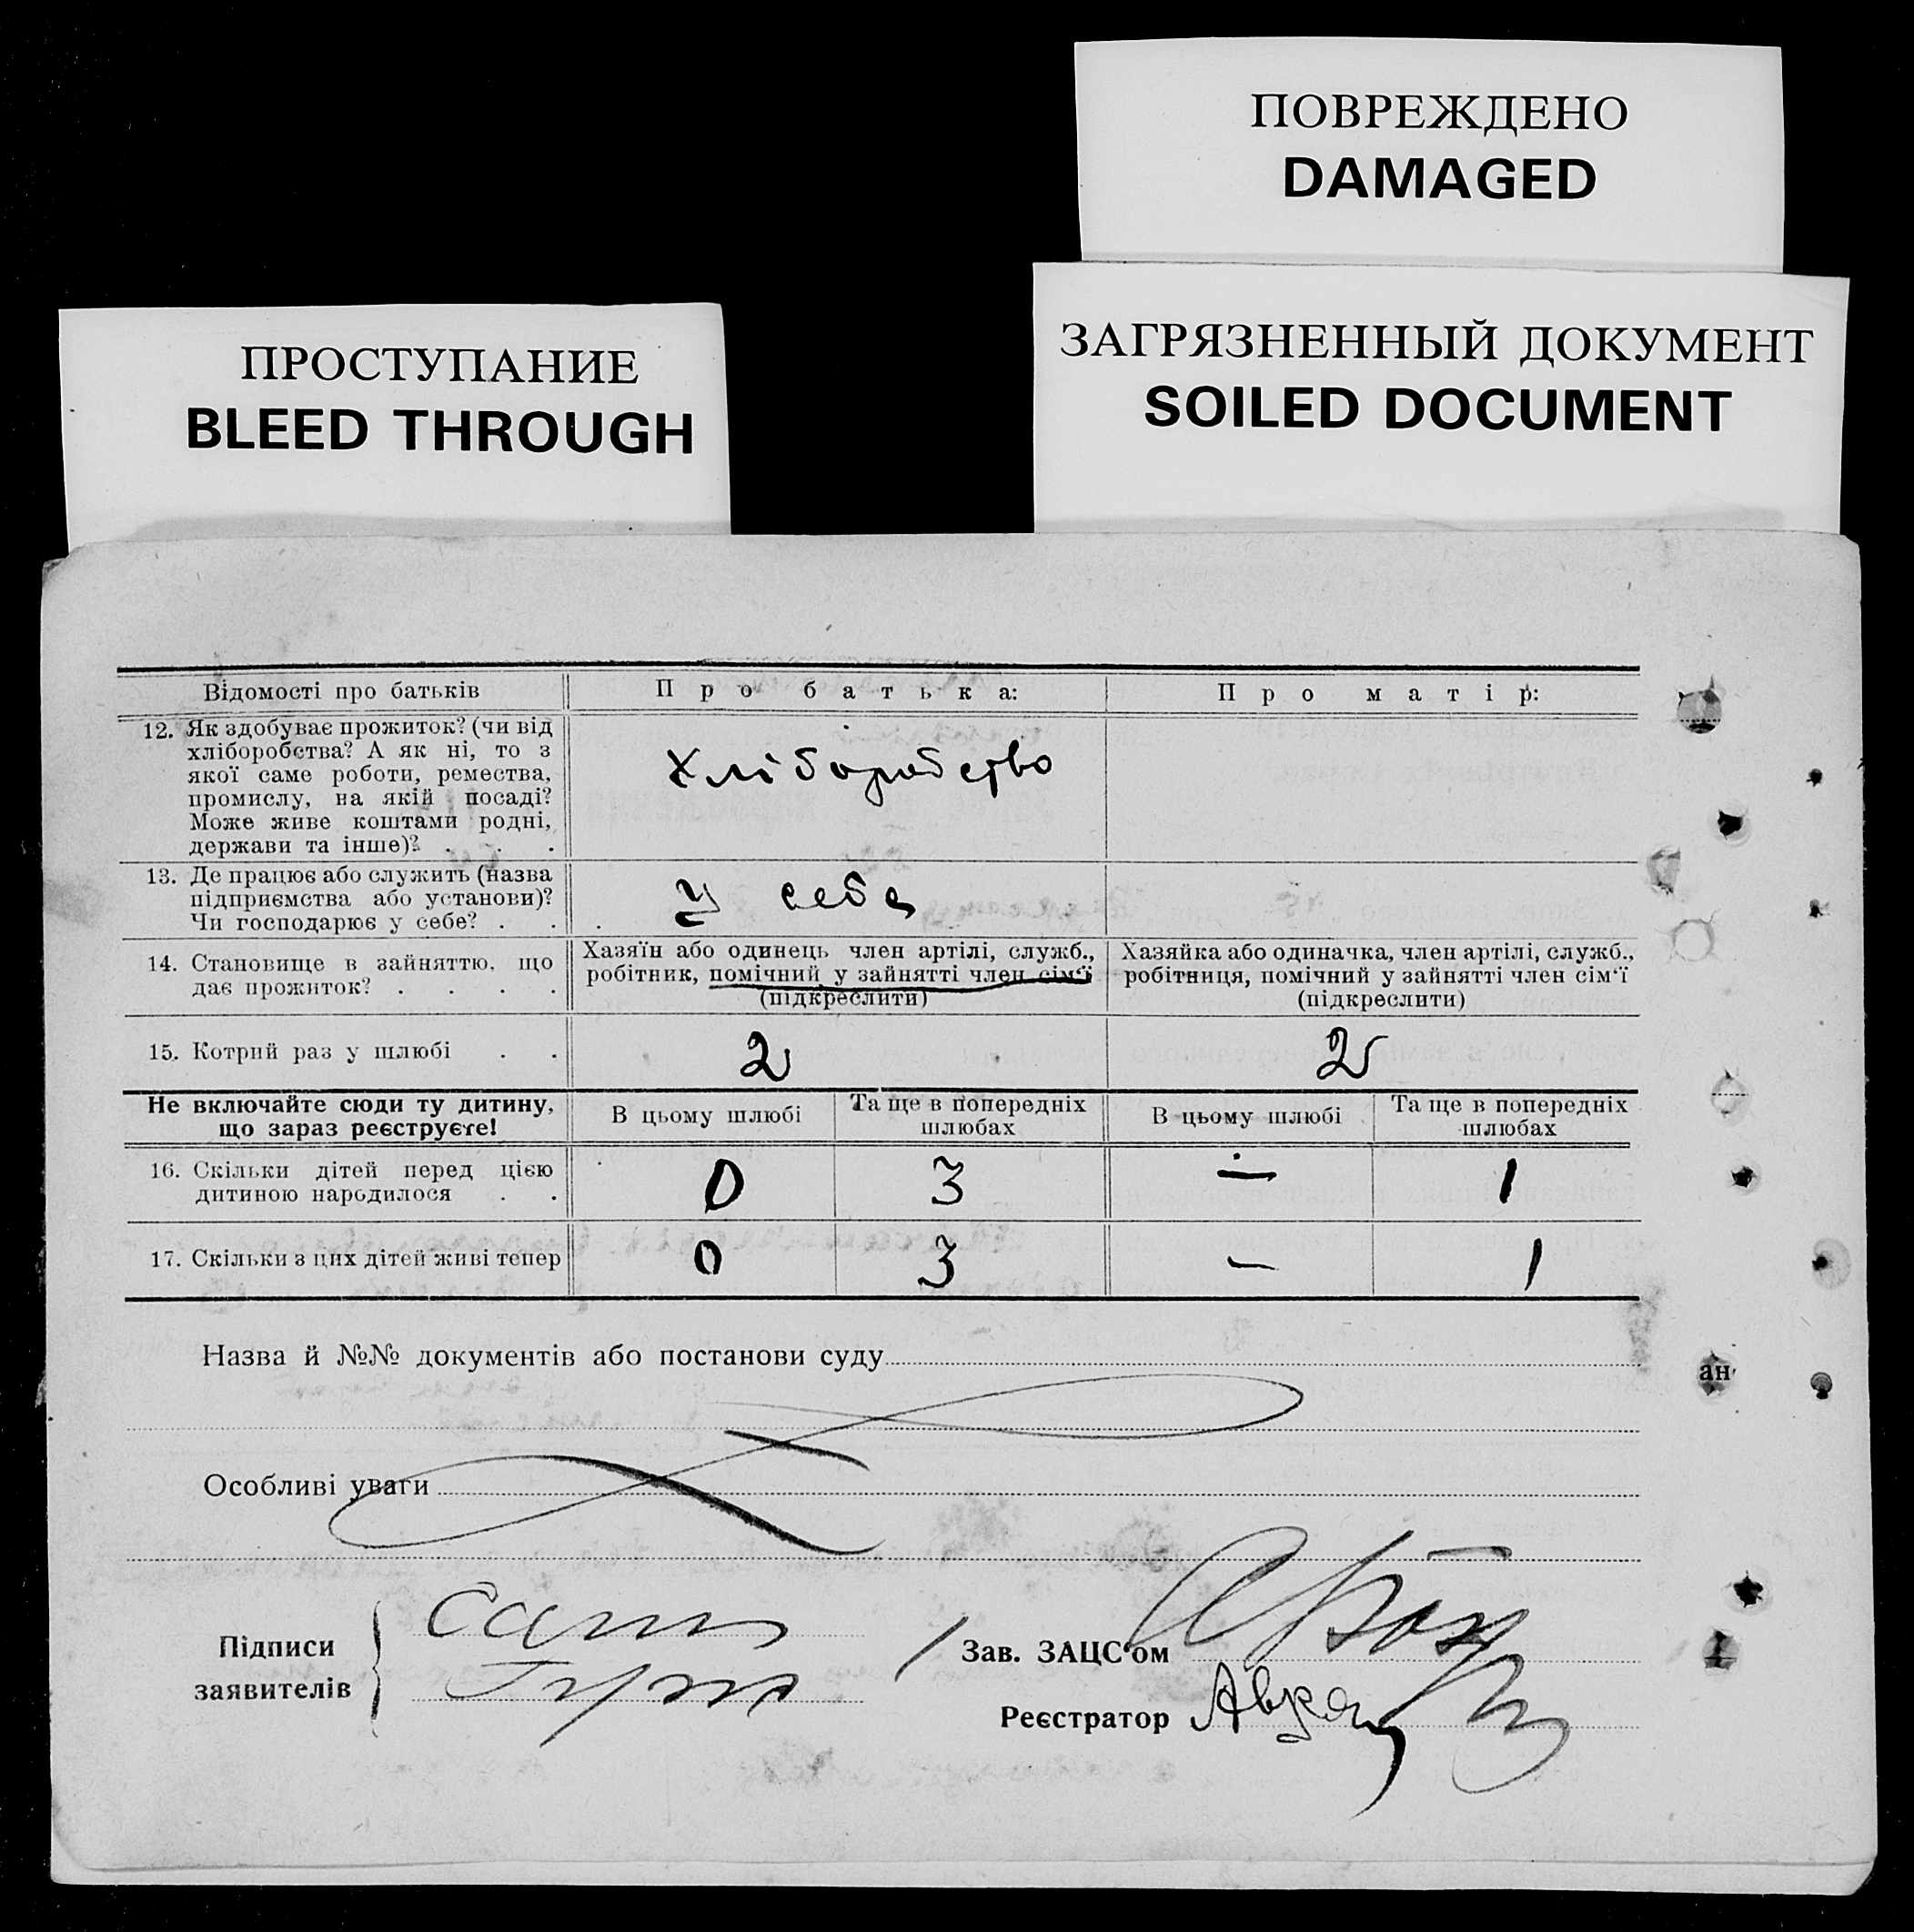 ПОВРЕЖДЕНО
DAMAGED
ЗАГРЯЗНЕННЫЙ ДОКУМЕНТ
SOILED DOCUMENT
ПРОСТУПАНИЕ
BLEED THROUGH
Відомості про батьків Про батька: Про матір:
12. Як здобуває прожиток? (чи від
хліборобства? А як ні, то з
якої саме роботи, ремества,
промислу, на якій посаді?
Може живе коштами родні,
держави та інше)? . . .
Хліборобство
13. Де працює або служить (назва
підприємства або установи)?
Чи господарює у себе? . . .
у себе
14. Становище в зайняттю, що
дає прожиток? . . . .
Хазяїн або одинець член артілі, служб.,
робітник, помічний у зайнятті член сім'ї
(підкреслити)
Хазяйка або одиначка, член артілі, служб.,
робітниця, помічний у зайнятті член сім'ї
(підкреслити)
15. Котрий раз у шлюбі . . 2 2
Не включайте сюди ту дитину,
що зараз реєструєте!
В цьому шлюбі
Та ще в попередніх
шлюбах
В цьому шлюбі
Та ще в попередніх
шлюбах
16. Скільки дітей перед цією
дитиною народилося . .
0 3 — 1
17. Скільки з цих дітей живі тепер 0 3 — 1
Назва й №№ документів або постанови суду
Особливі уваги
Підписи
заявителів
Зав. ЗАЦС'ом
Реєстратор
ан